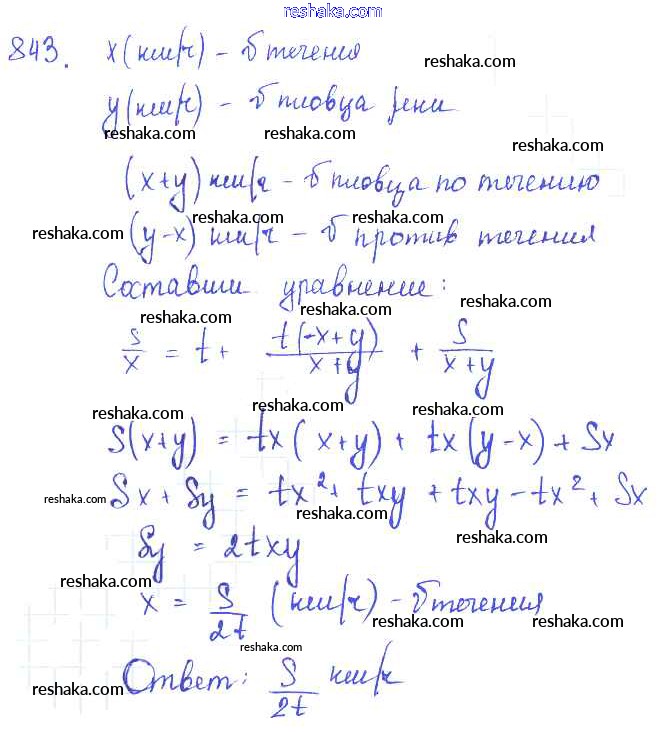 www.reshaka.com
843. x (км/ч) - υ течения
reshaka.com
y (км/ч) - υ пловца реки
reshaka.com reshaka.com
reshaka.com
(x+y) км/ч - υ пловца по течению
reshaka.com reshaka.com
reshaka.com (y-x) км/ч - υ против течения
Составим уравнение:
reshaka.com
reshaka.com reshaka.com
s/x = t + t(-x+y)/(x+y) + S/(x+y)
reshaka.com reshaka.com
reshaka.com
S(x+y) = tx(x+y) + tx(y-x) + Sx
reshaka.com
reshaka.com Sx + Sy = tx² + txy + txy - tx² + Sx
reshaka.com
reshaka.com reshaka.com
Sy = 2txy
reshaka.com reshaka.com
x = S/2t (км/ч) - υ течения
reshaka.com reshaka.com
reshaka.com
Ответ: S/2t км/ч
reshaka.com reshaka.com